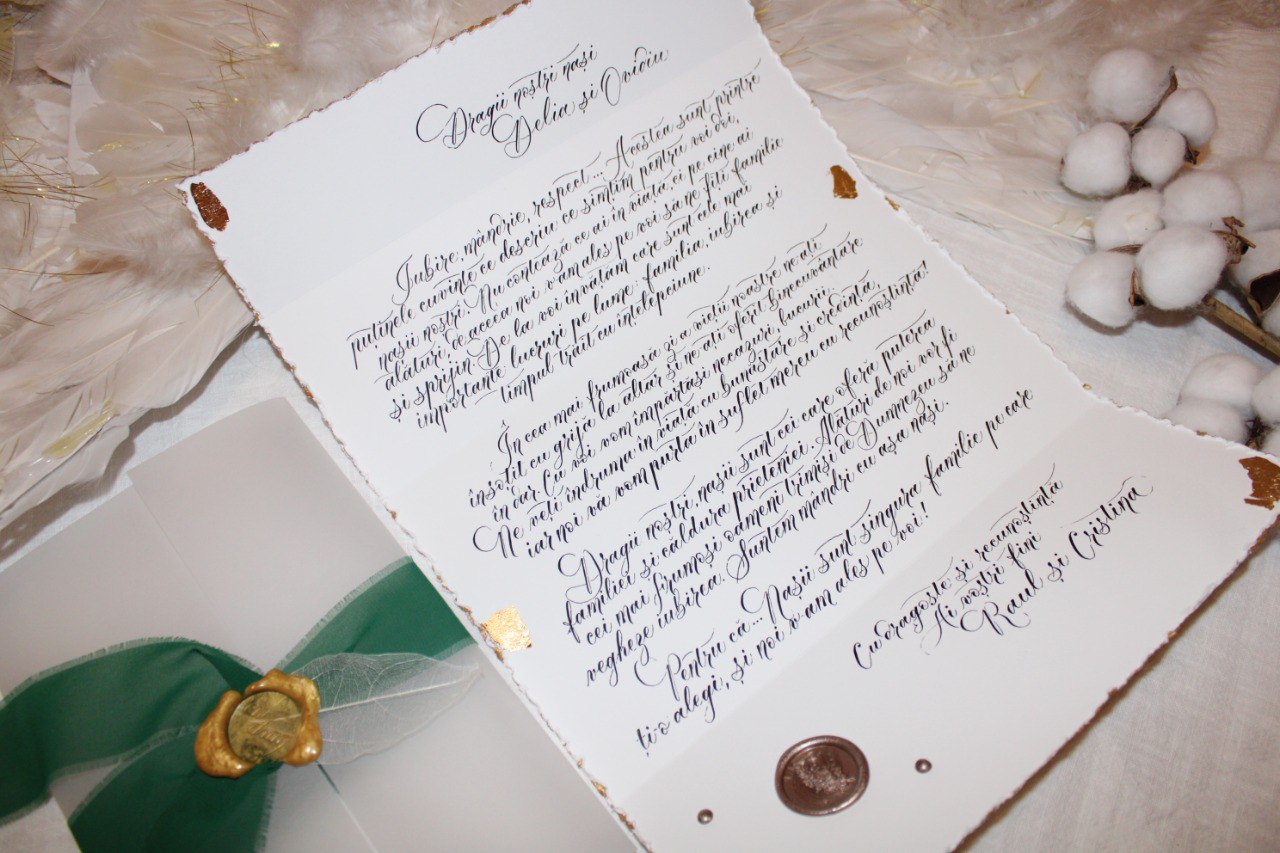 Dragii noștri nași
Delia și Ovidiu
Iubire, mândrie, respect... Acestea sunt printre
puținele cuvinte ce descriu ce simțim pentru voi doi,
nașii noștri. Nu contează ce ai în viață, ci pe cine ai
alături, de aceea noi v-am ales pe voi să ne fiți familie
și sprijin. De la voi învățăm care sunt cele mai
importante lucruri pe lume: familia, iubirea și
timpul trăit cu înțelepciune.
În cea mai frumoasă zi a vieții noastre ne-ați
însoțit cu grijă la altar și ne-ați oferit binecuvântare
în dar. Cu voi vom împărtăși necazuri, bucurii..
Ne veți îndruma în viață cu bunăstare și credință,
iar noi vă vom purta în suflet mereu cu recunoștință!
Dragii noștri, nașii sunt cei care oferă puterea
familiei și căldura prieteniei. Alături de noi vor fi
cei mai frumoși oameni trimiși de Dumnezeu să ne
vegheze iubirea. Suntem mândri cu așa nași.
Pentru că... Nașii sunt singura familie pe care
ți-o alegi, și noi v-am ales pe voi!
Cu dragoste și recunoștință
Ai voștri fini
Raul și Cristina